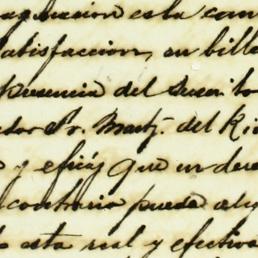 esta can
satisfaccion, en bille
presencia del Suscrito
tor Dr. Martz. del Rio
y eficáz que un dere
contrario pueda aleg
esta real y efectiva